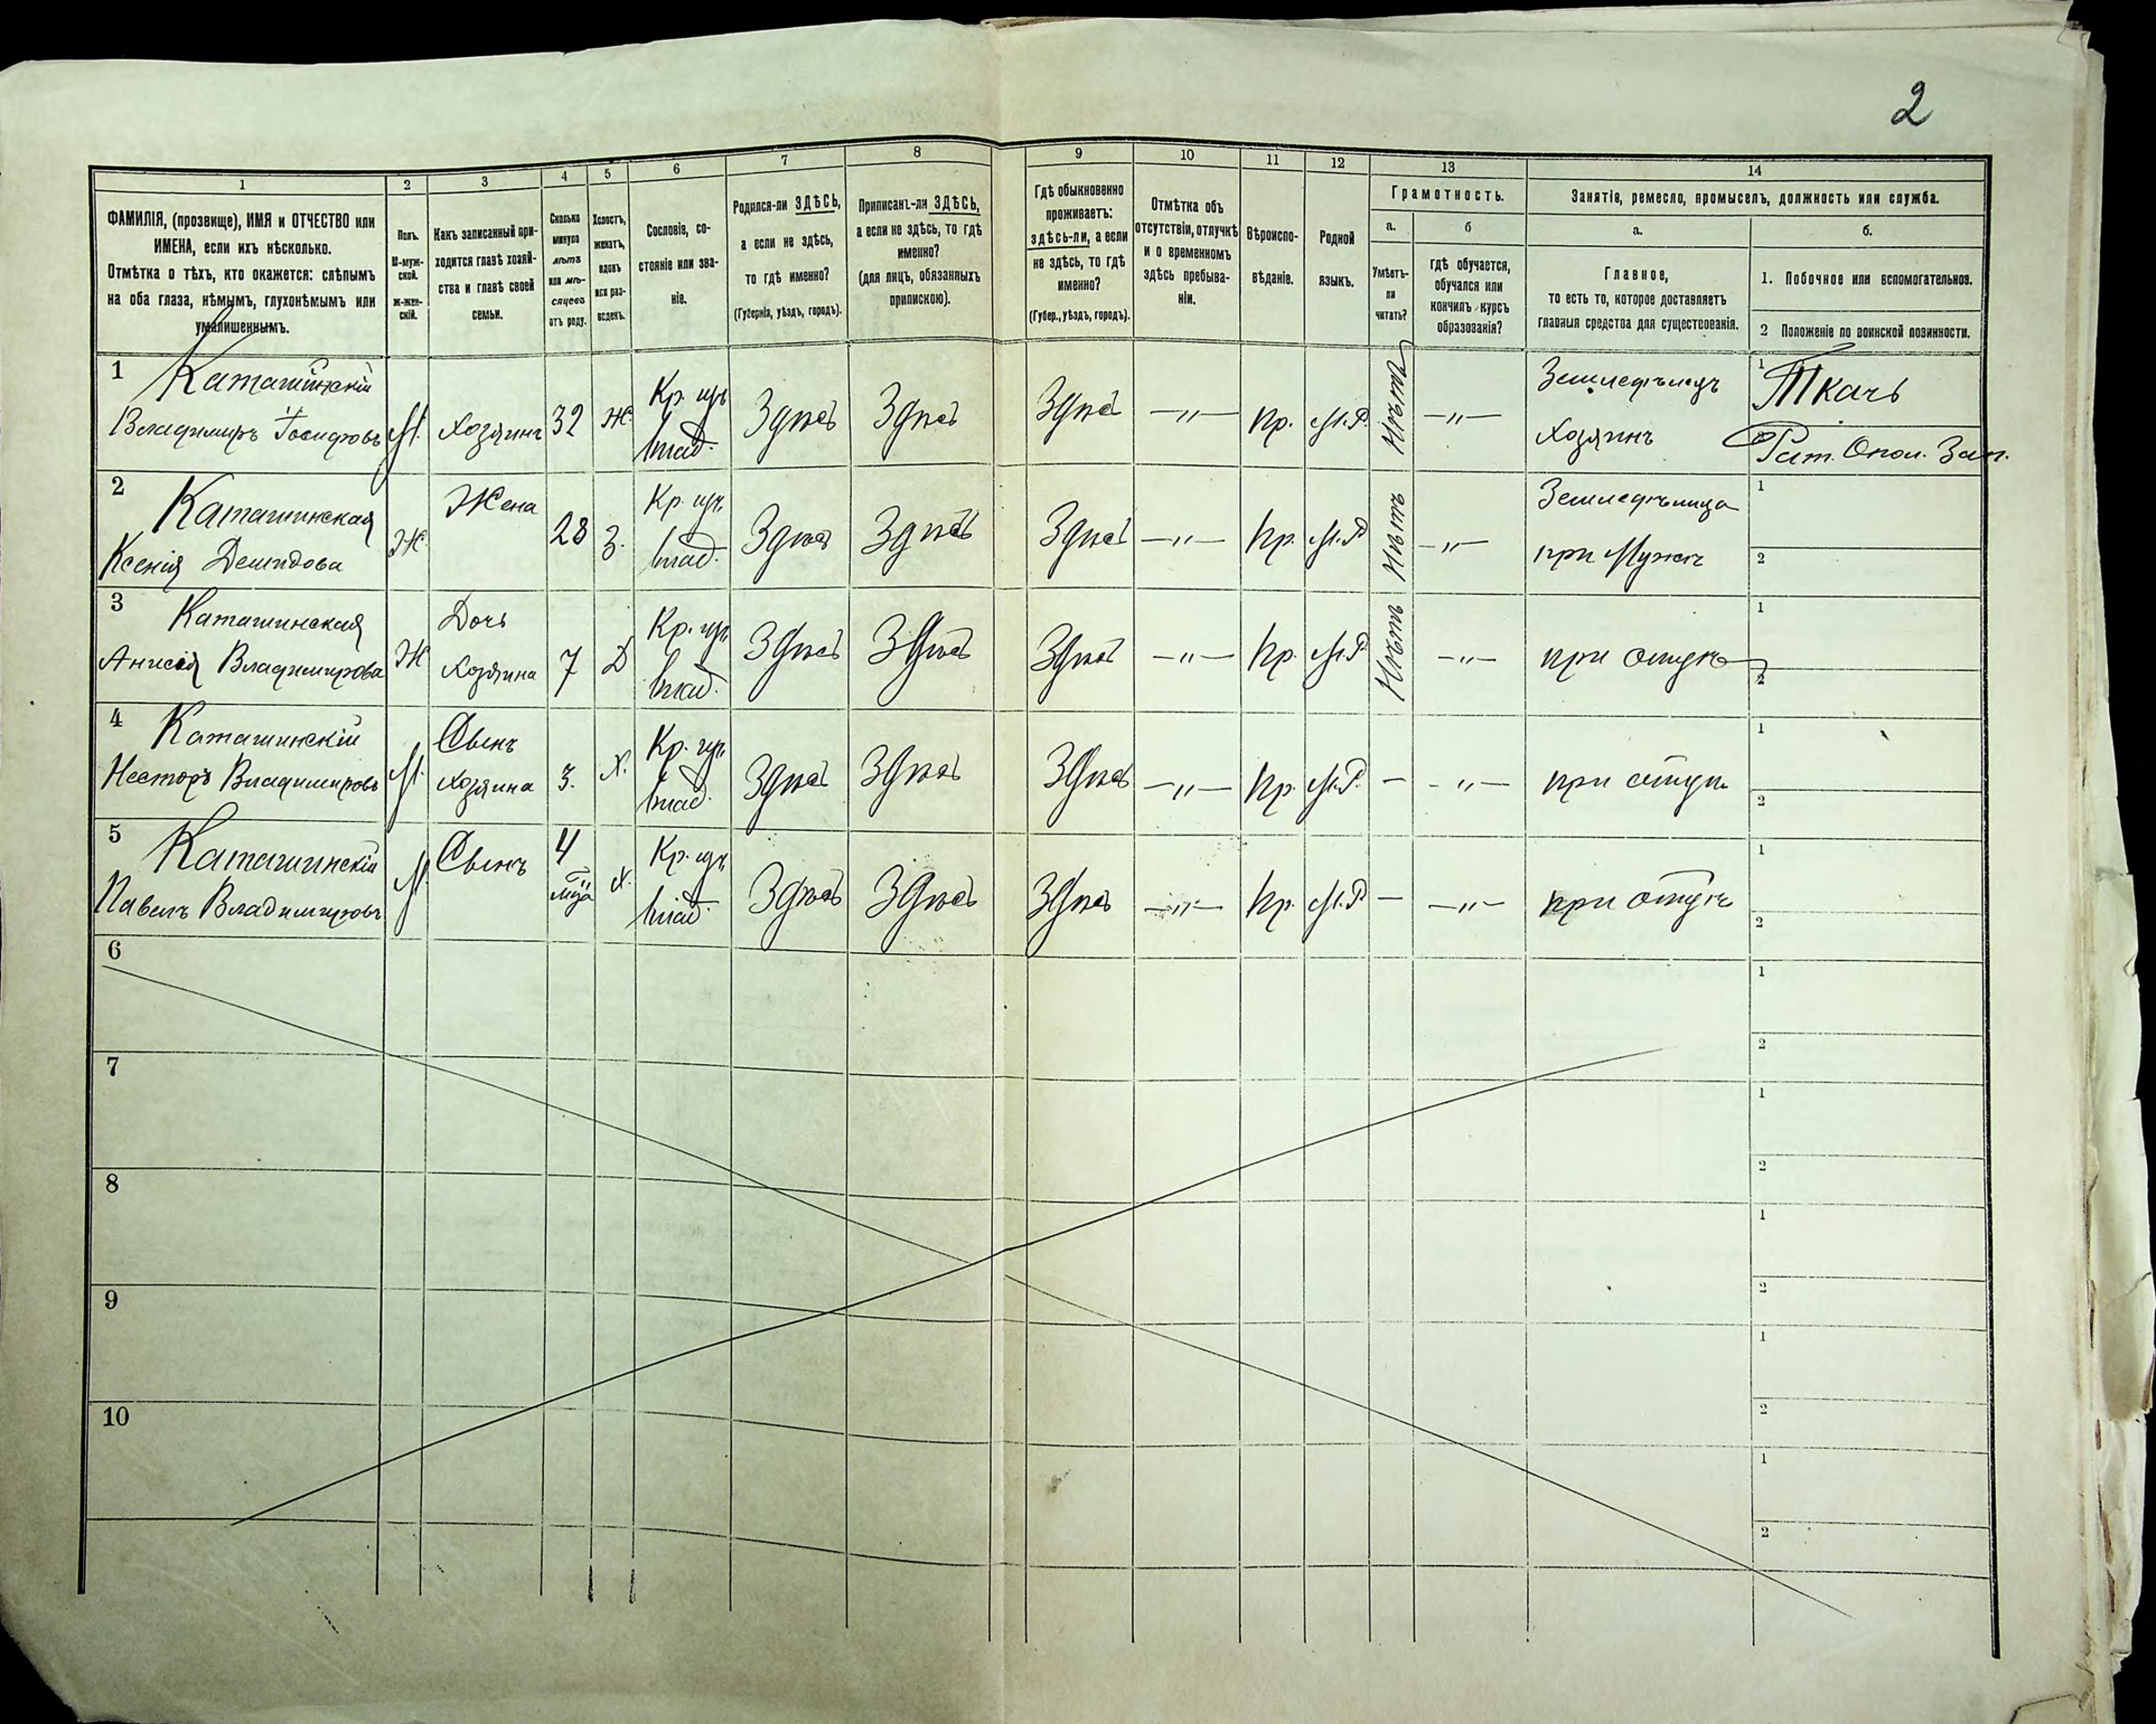 2
1 2 3 4 5 6 7 8 9 10 11 12 13 14
ФАМИЛІЯ, (прозвище), ИМЯ и ОТЧЕСТВО или ИМЕНА, если ихъ нѣсколько.
Отмѣтка о тѣхъ, кто окажется: слѣпымъ на оба глаза, нѣмымъ, глухонѣмымъ или умалишеннымъ.
Полъ.
М-муж-
ской.
Ж-жен-
скій.
Какъ записанный при-
ходится главѣ хозяй-
ства и главѣ своей
семьи.
Сколько
минуло
лѣтъ
или мѣ-
сяцевъ
отъ роду.
Холостъ,
женатъ,
вдовъ
или раз-
веденъ.
Сословіе, со-
стояніе или зва-
ніе.
Родился-ли ЗДѢСЬ,
а если не здѣсь,
то гдѣ именно?
(Губернія, уѣздъ, городъ).
Приписанъ-ли ЗДѢСЬ,
а если не здѣсь, то гдѣ
именно?
(для лицъ, обязанныхъ
припискою).
Гдѣ обыкновенно
проживаетъ:
здѣсь-ли, а если
не здѣсь, то гдѣ
именно?
(Губер., уѣздъ, городъ).
Отмѣтка объ
отсутствіи, отлучкѣ
и о временномъ
здѣсь пребыва-
ніи.
Вѣроиспо-
вѣданіе.
Родной
языкъ.
Грамотность.
а.
Умѣетъ-
ли
читать?
б
гдѣ обучается,
обучался или
кончилъ курсъ
образованія?
Занятіе, ремесло, промыселъ, должность или служба.
а.
Главное,
то есть то, которое доставляетъ
главныя средства для существованія.
б.
1. Побочное или вспомогательное.
2 Положеніе по воинской повинности.
1 Каташинскій
Владимиръ Іосифовъ М. Хозяинъ 32 Ж. Кр. изъ влад. Здѣсь Здѣсь Здѣсь —„— Пр. М.Р. Нѣтъ —„— Земледѣлецъ Хозяинъ 1 Ткачъ
2 Рат. Опол. Зап.
2 Каташинская
Ксенія Демидова Ж. Жена 28 З. Кр. изъ влад. Здѣсь Здѣсь Здѣсь —„— Пр. М.Р. Нѣтъ —„— Земледѣлица при Мужѣ 1
2
3 Каташинская
Анисія Владимирова Ж Дочь Хозяина 7 Д Кр. изъ влад. Здѣсь Здѣсь Здѣсь —„— Пр. М.Р. Нѣтъ —„— при отцѣ 1
2
4 Каташинскій
Несторъ Владимировъ М. Сынъ Хозяина 3. Х. Кр. изъ влад. Здѣсь Здѣсь Здѣсь —„— Пр. М.Р. — —„— при отцѣ 1
2
5 Каташинскій
Павелъ Владимировъ М. Сынъ 4 м-ца Х. Кр. изъ влад. Здѣсь Здѣсь Здѣсь —„— Пр. М.Р — —„— при отцѣ 1
2
6 1
2
7 1
2
8 1
2
9 1
2
10 1
2